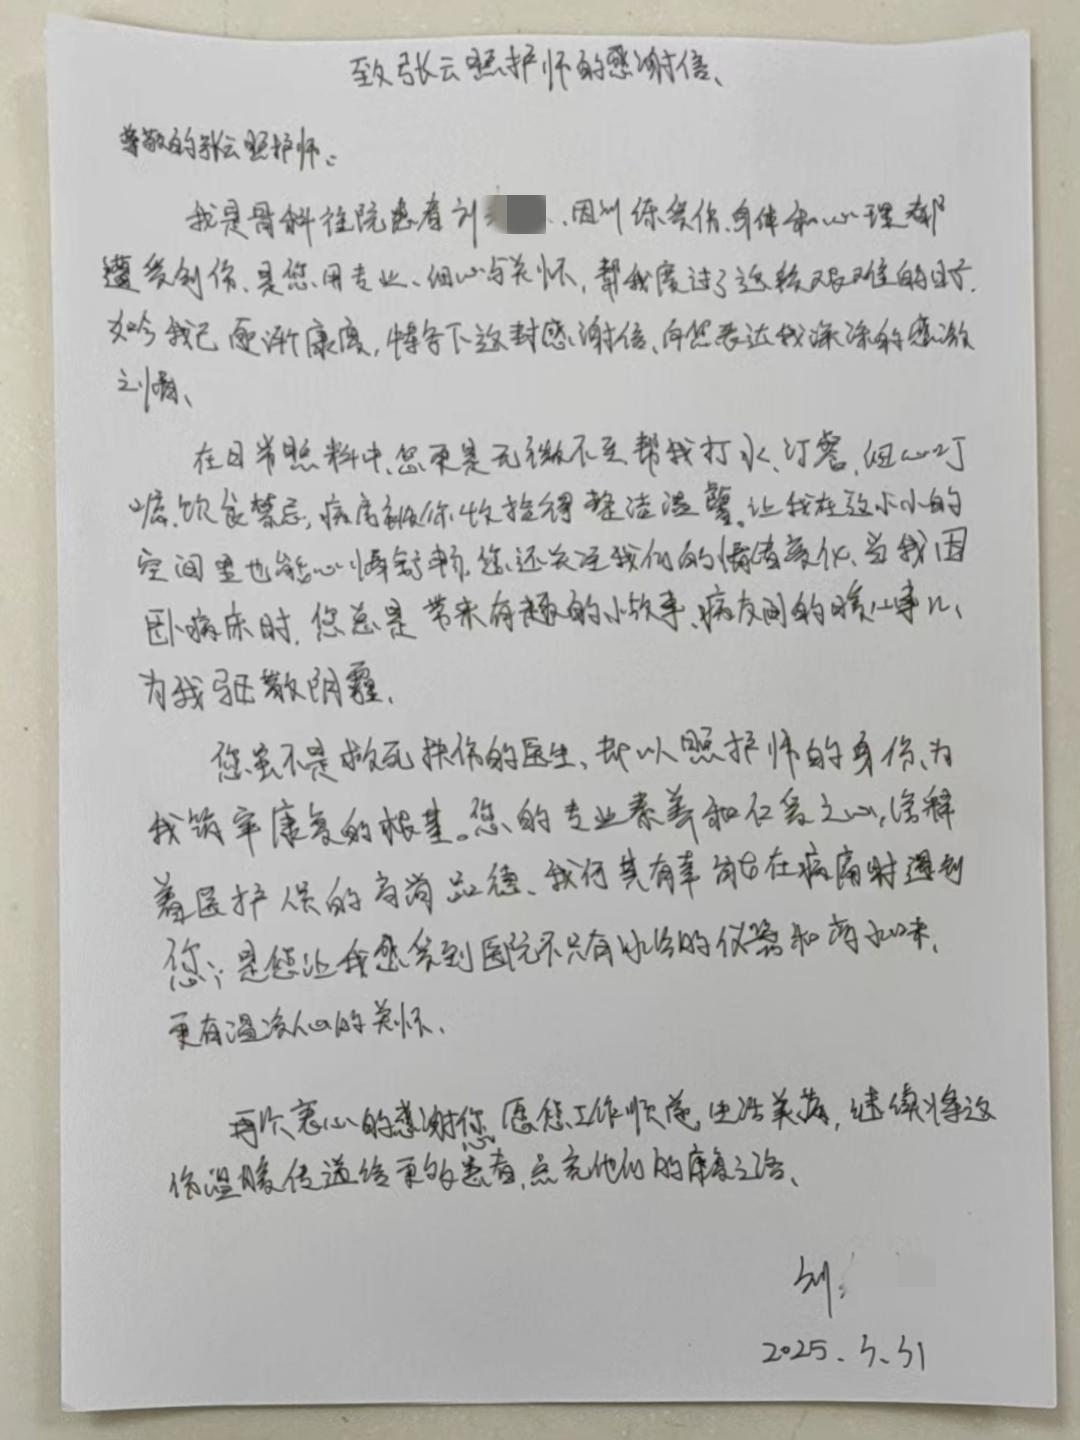 致张云照护师的感谢信、
尊敬的张云照护师：
我是骨科住院患者刘 、因训练受伤、身体和心理都
遭受创伤、是您用专业、细心与关怀，帮我度过了这段艰难的时光、
如今我已逐渐康复，特写下这封感谢信、向您表达我深深的感激
之情、
在日常照料中、您更是无微不至、帮我打水、订餐、细心叮
嘱饮食禁忌，病房被你收拾得整洁温馨。让我在这小小的
空间里也能心情舒畅、您还关注我们的情绪变化、当我因
卧病床时，您总是带来有趣的小故事、病友间的暖心事儿、
为我驱散阴霾、
您虽不是救死扶伤的医生、却以照护师的身份、为
我筑牢康复的根基。您的专业素养和仁爱之心，诠释
着医护人员的高尚品德、我何其有幸能在病痛时遇到
您；是您让我感受到医院不只有冰冷的仪器和药水味，
更有温暖人心的关怀、
再次衷心的感谢您、愿您工作顺遂，生活美满，继续将这
份温暖传递给更多患者，点亮他们的康复之路、
刘
2025、3、31